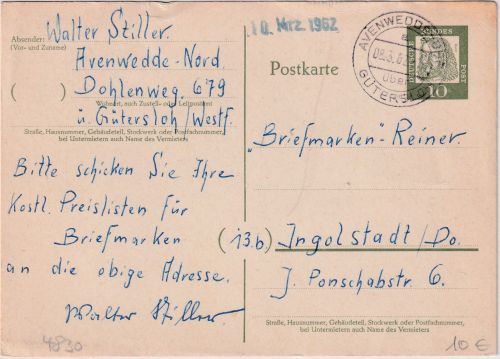 Absender:
(Vor- und Zuname)
Walter Stiller.
Avenwedde-Nord.
Dohlenweg. 679
( )
Wohnort, auch Zustell- oder Leitpostamt
ü. Gütersloh/Westf.
Straße, Hausnummer, Gebäudeteil, Stockwerk oder Postfachnummer,
bei Untermietern auch Name des Vermieters
Bitte schicken Sie Ihre
Kostl. Preislisten für
Briefmarken
an die obige Adresse.
Walter Stiller.
4830
10. Mrz. 1962
Postkarte
AVENWEDDE
über
GÜTERSLOH
DEUTSCHE
BUNDES
POST
10
„Briefmarken"-Reiner.
(13.b) Ingolstadt/Do.
J. Ponschabstr 6.
Straße, Hausnummer, Gebäudeteil, Stockwerk oder Postfachnummer,
bei Untermietern auch Name des Vermieters
10 €